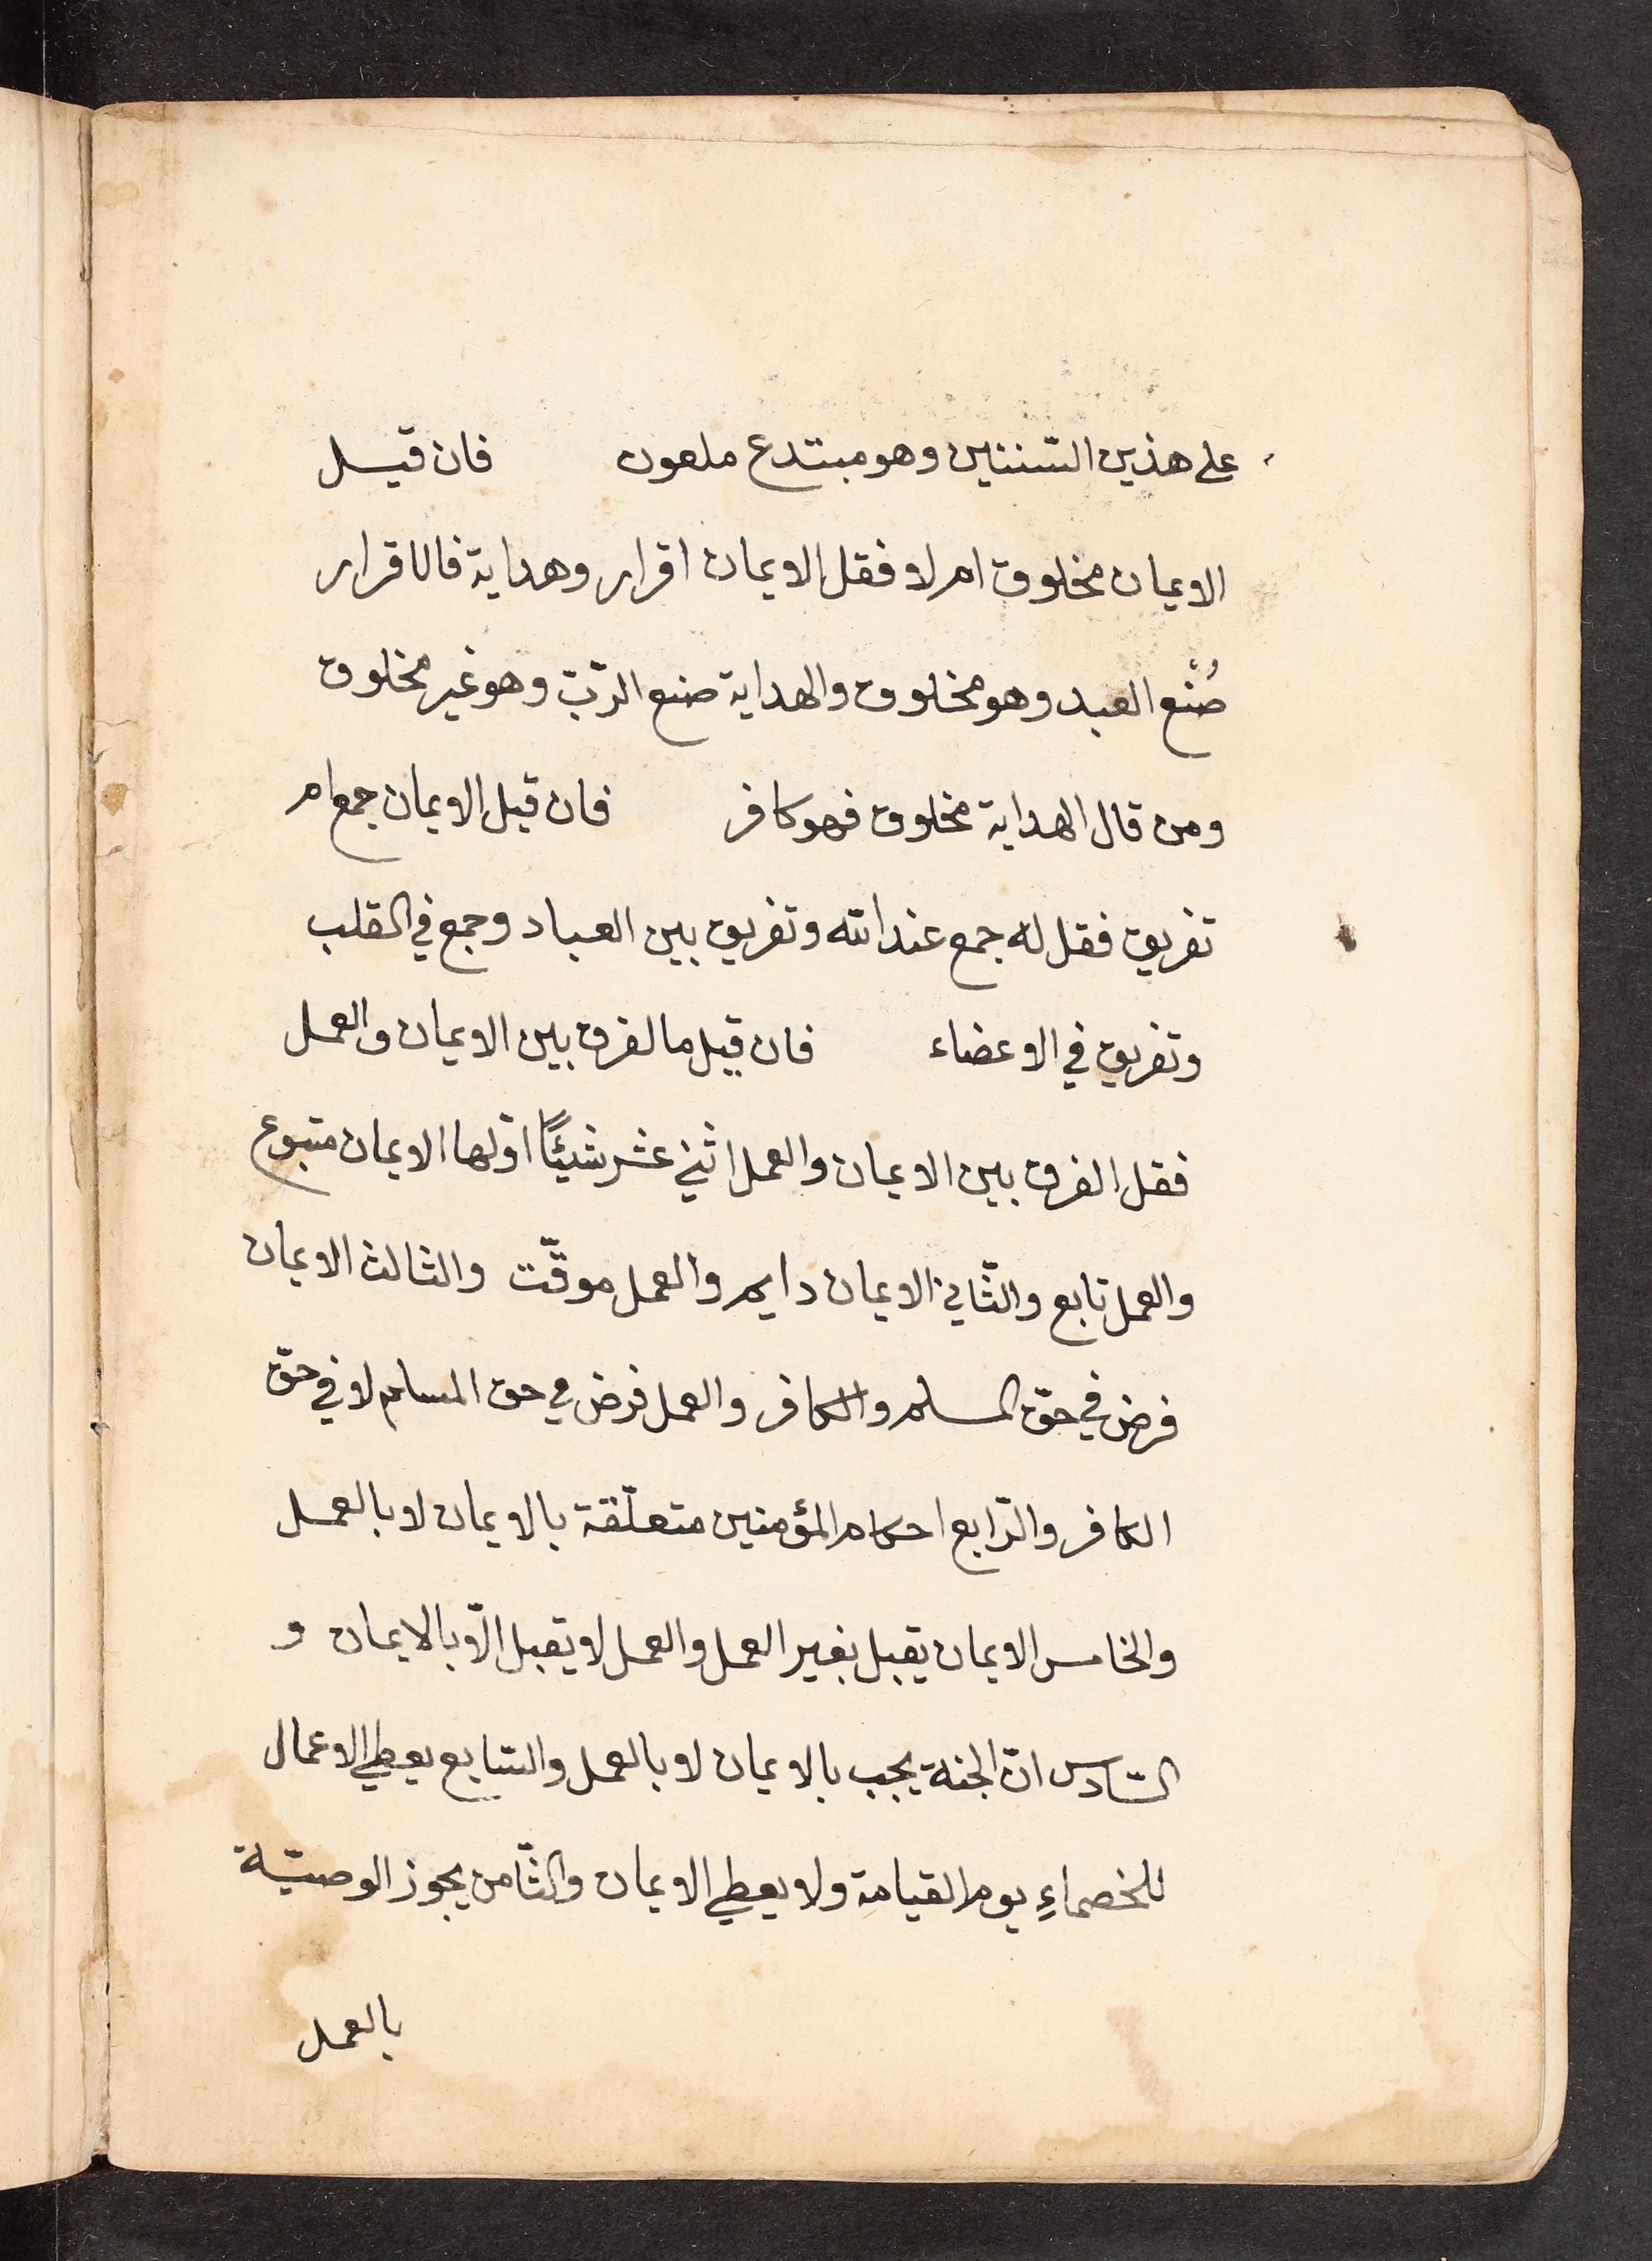 على هذين السّننين وهو مبتدع ملعون فان قيل
الايمان مخلوق ام لا فقل الايمان اقرار وهداية فالاقرار
صُنْع العبد وهو مخلوق والهداية صنع الرّبّ وهو غير مخلوق
ومن قال الهداية مخلوق فهو كافر فان قيل الايمان جمع ام
تفريق فقل له جمع عند الله وتفريق بين العباد وجمع في القلب
وتفريق في الاعضاء فان قيل ما لفرق بين الايمان والعمل
فقل الفرق بين الايمان والعمل اثني عشر شيئًا اوّلها الايمان متبوع
والعمل تابع والثّاني الايمان دايم والعمل موقّت والثالث الايمان
فرض في حقّ المسلم والكافر والعمل فرض في حق المسلم لا في حقّ
الكافر والرّابع احكام المؤمنين متعلّقة بالايمان لا بالعمل
والخامس الايمان يقبل بغير العمل والعمل لا يقبل الّا بالايمان و
السّادس انّ الجنة يجب بالايمان لا بالعمل والسّابع يعطي الاعمال
للخصماءِ يوم القيامة ولا يعطي الايمان والثّامن يجوز الوصيّة
بالعمل